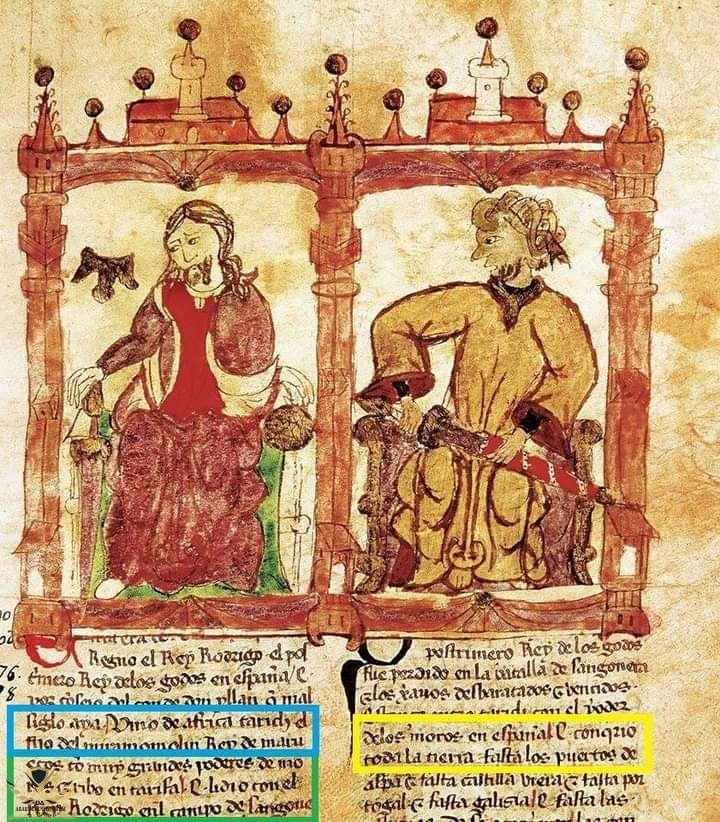 Regno el Rey Rodrigo el pos
tmero Rey delos godos en españa / E
76.
8
por cõseio del conde don yllan q̃ mal
siglo aya / Vino de africa tarich el
fijo del miramomolin Rey de maru
ecos cõ muy grandes poderes de mo
s E ribo en tarifa / E lidio con el
Rey Rodrigo enl campo de sangone
postrimero Rey de los godos
fue perdido en la batalla de sangonera
E los xãnos desbaratados E vençidos
con el poder
delos moros en españa / E conqrio
toda la tierra fasta los puertos de
aspa E fasta castilla vieia E fasta por
togal E fasta galisia / E fasta las